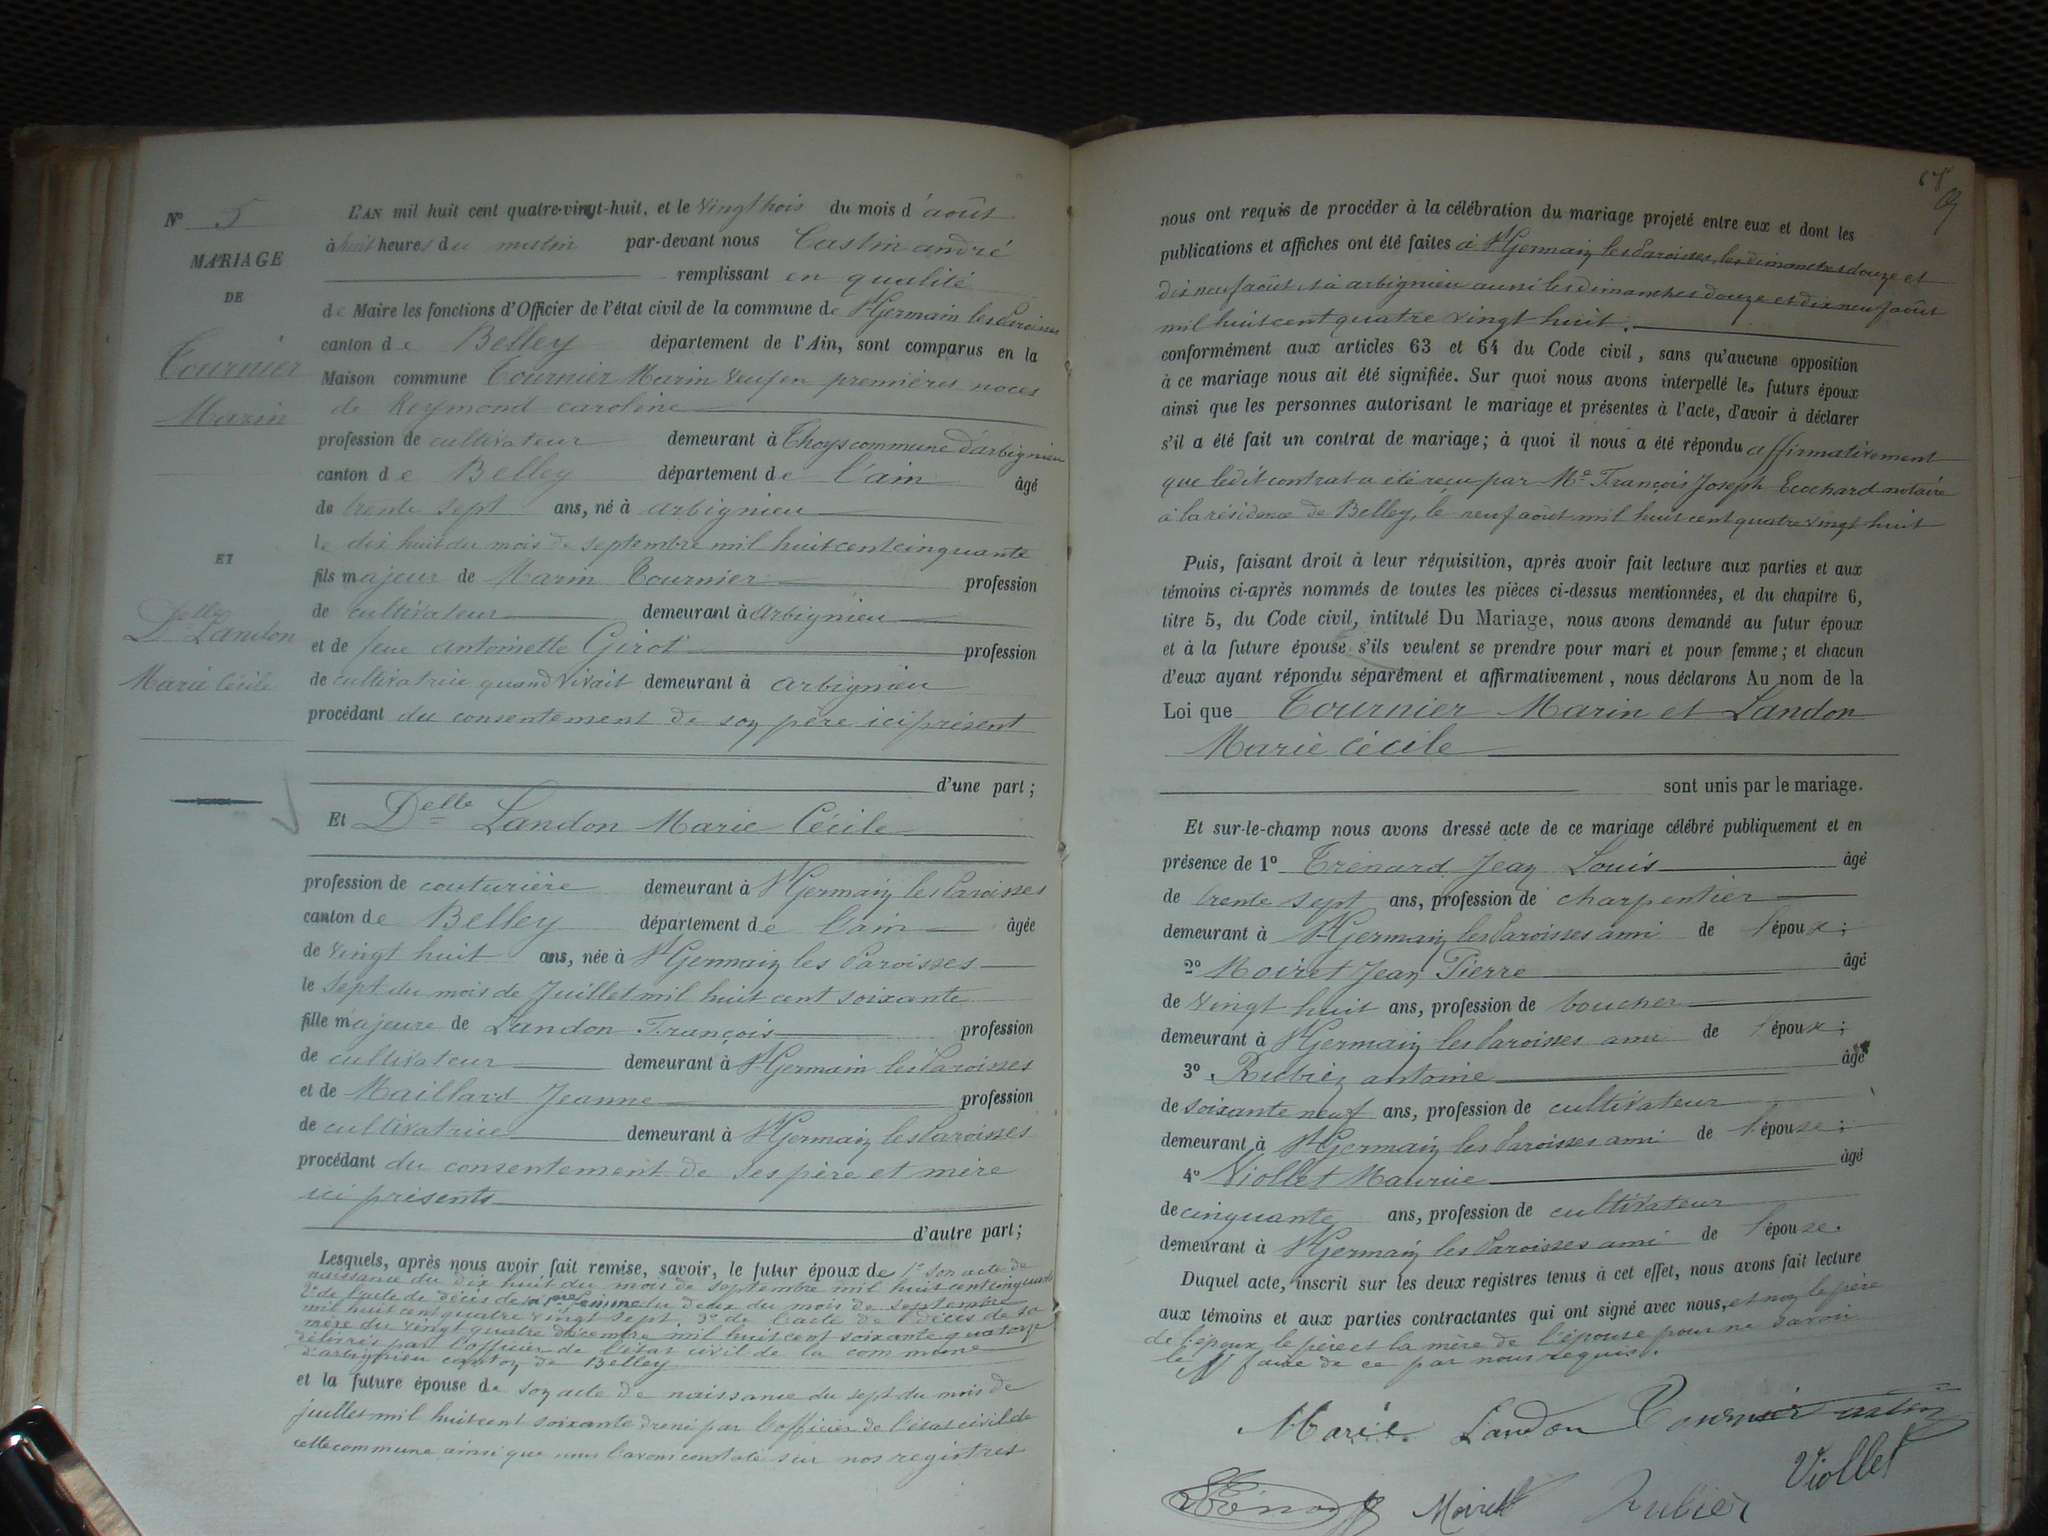 N° 5
MARIAGE
DE
Tournier
Marin
ET
Delle Landon
Marie Cécile
L'AN mil huit cent quatre-vingt-huit, et le vingt trois du mois d'août
à huit heures du matin par-devant nous Castin andré
remplissant en qualité
de Maire les fonctions d'Officier de l'état civil de la commune de St Germain les Paroisses
canton de Belley département de l'Ain, sont comparus en la
Maison commune Tournier Marin veuf en premières noces
de Reymond caroline
profession de cultivateur demeurant à Thoys commune d'arbignieu
canton de Belley département de l'ain âgé
de trente sept ans, né à arbignieu
le dix huit du mois de septembre mil huit cent cinquante
fils majeur de Marin Tournier profession
de cultivateur demeurant à arbignieu
et de feue antoinette Girot profession
de cultivatrice quand vivait demeurant à arbignieu
procédant du consentement de son père ici présent
d'une part ;
Et Delle Landon Marie Cécile
profession de couturière demeurant à St Germain les Paroisses
canton de Belley département de l'ain âgée
de vingt huit ans, née à St Germain les Paroisses
le sept du mois de Juillet mil huit cent soixante
fille majeure de Landon François profession
de cultivateur demeurant à St Germain les Paroisses
et de Maillard Jeanne profession
de cultivatrice demeurant à St Germain les Paroisses
procédant du consentement de ses père et mère
ici présents
d'autre part ;
Lesquels, après nous avoir fait remise, savoir, le futur époux de 1° son acte de
naissance du dix huit du mois de septembre mil huit cent cinquante
2° de l'acte de décès de sa pre femme du deux du mois de septembre
mil huit cent quatre vingt sept. 3° de l'acte de décès de sa
mère du vingt quatre décembre mil huit cent soixante quatorze
délivrés par l'officier de l'état civil de la commune
d'arbignieu canton de Belley
et la future épouse de son acte de naissance du sept du mois de
juillet mil huit cent soixante dressé par l'officier de l'état civil de
cette commune ainsi que nous l'avons constaté sur nos registres
nous ont requis de procéder à la célébration du mariage projeté entre eux et dont les
publications et affiches ont été faites à St Germain les Paroisses, les dimanches douze et
dix neuf août et à arbignieu aussi les dimanches douze et dix neuf août
mil huit cent quatre vingt huit.
conformément aux articles 63 et 64 du Code civil, sans qu'aucune opposition
à ce mariage nous ait été signifiée. Sur quoi nous avons interpellé les futurs époux
ainsi que les personnes autorisant le mariage et présentes à l'acte, d'avoir à déclarer
s'il a été fait un contrat de mariage ; à quoi il nous a été répondu affirmativement
que ledit contrat a été reçu par Me François Joseph Ecochard notaire
à la résidence de Belley, le neuf août mil huit cent quatre vingt huit
Puis, faisant droit à leur réquisition, après avoir fait lecture aux parties et aux
témoins ci-après nommés de toutes les pièces ci-dessus mentionnées, et du chapitre 6,
titre 5, du Code civil, intitulé Du Mariage, nous avons demandé au futur époux
et à la future épouse s'ils veulent se prendre pour mari et pour femme ; et chacun
d'eux ayant répondu séparément et affirmativement, nous déclarons Au nom de la
Loi que Tournier Marin et Landon
Marie Cécile
sont unis par le mariage.
Et sur-le-champ nous avons dressé acte de ce mariage célébré publiquement et en
présence de 1° Trénard Jean Louis âgé
de trente sept ans, profession de charpentier
demeurant à St Germain les Paroisses ami de l'époux ;
2° Moiret Jean Pierre âgé
de vingt huit ans, profession de boucher
demeurant à St Germain les Paroisses ami de l'époux ;
3° Rubier antoine âgé
de soixante neuf ans, profession de cultivateur
demeurant à St Germain les Paroisses ami de l'épouse ;
4° Viollet Maurice âgé
de cinquante ans, profession de cultivateur
demeurant à St Germain les Paroisses ami de l'épouse.
Duquel acte, inscrit sur les deux registres tenus à cet effet, nous avons fait lecture
aux témoins et aux parties contractantes qui ont signé avec nous, et non le père
de l'époux le père et la mère de l'épouse pour ne savoir
le faire de ce par nous requis.
Marie Landon Tournier Castin
Trénard Moiret Rubier Viollet